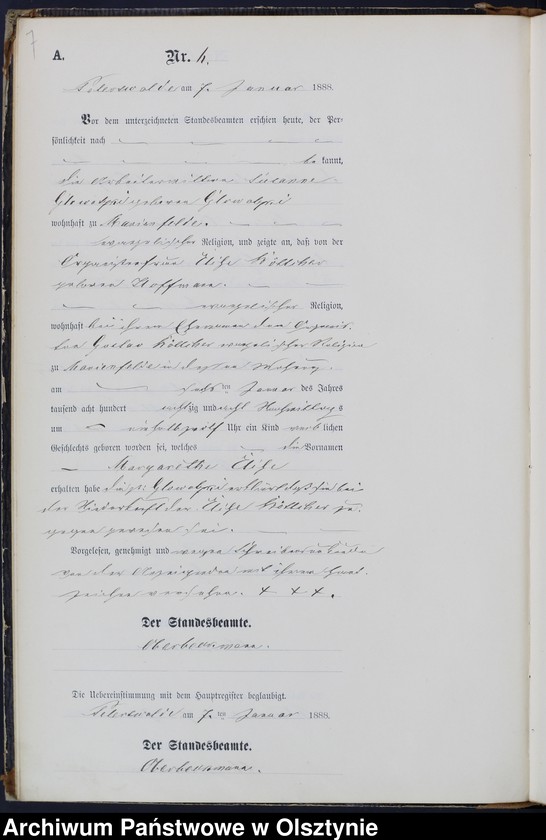 7
A. Nr. 4.
Peterswalde am 7. Januar 1888.
Vor dem unterzeichneten Standesbeamten erschien heute, der Per-
sönlichkeit nach
bekannt,
die Arbeiterwittwe Susanne
geborene
wohnhaft zu Marienfelde.
evangelischer Religion, und zeigte an, daß von der
Organistenfrau Elise
geborene Hoffmann.
evangelischer Religion,
wohnhaft bei ihrem Ehemann dem Organis-
ten Gustav evangelischer Religion
zu Marienfelde in dessen Wohnung
am sechsten Januar des Jahres
tausend acht hundert achtzig und acht Nachmittags
um Uhr ein Kind weiblichen
Geschlechts geboren worden sei, welches die Vornamen
Margarethe Elise
erhalten habe die p: erklärt daß sie bei
der Niederkunft der Elise zu-
gegen gewesen sei.
Vorgelesen, genehmigt und wegen Schreibensunkunde
von der Anzeigenden mit ihrem Hand-
zeichen versehen. + + +.
Der Standesbeamte.
Die Uebereinstimmung mit dem Hauptregister beglaubigt.
Peterswalde am 7.ten Januar 1888.
Der Standesbeamte.
Archiwum Państwowe w Olsztynie